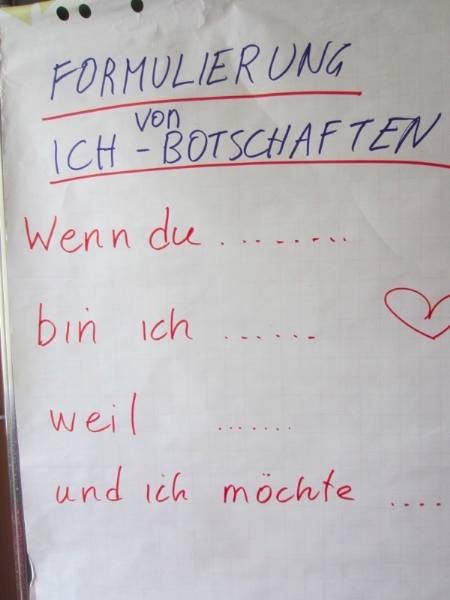 FORMULIERUNG
von
ICH - BOTSCHAFTEN
Wenn du .........
bin ich ......
weil .......
und ich möchte ....